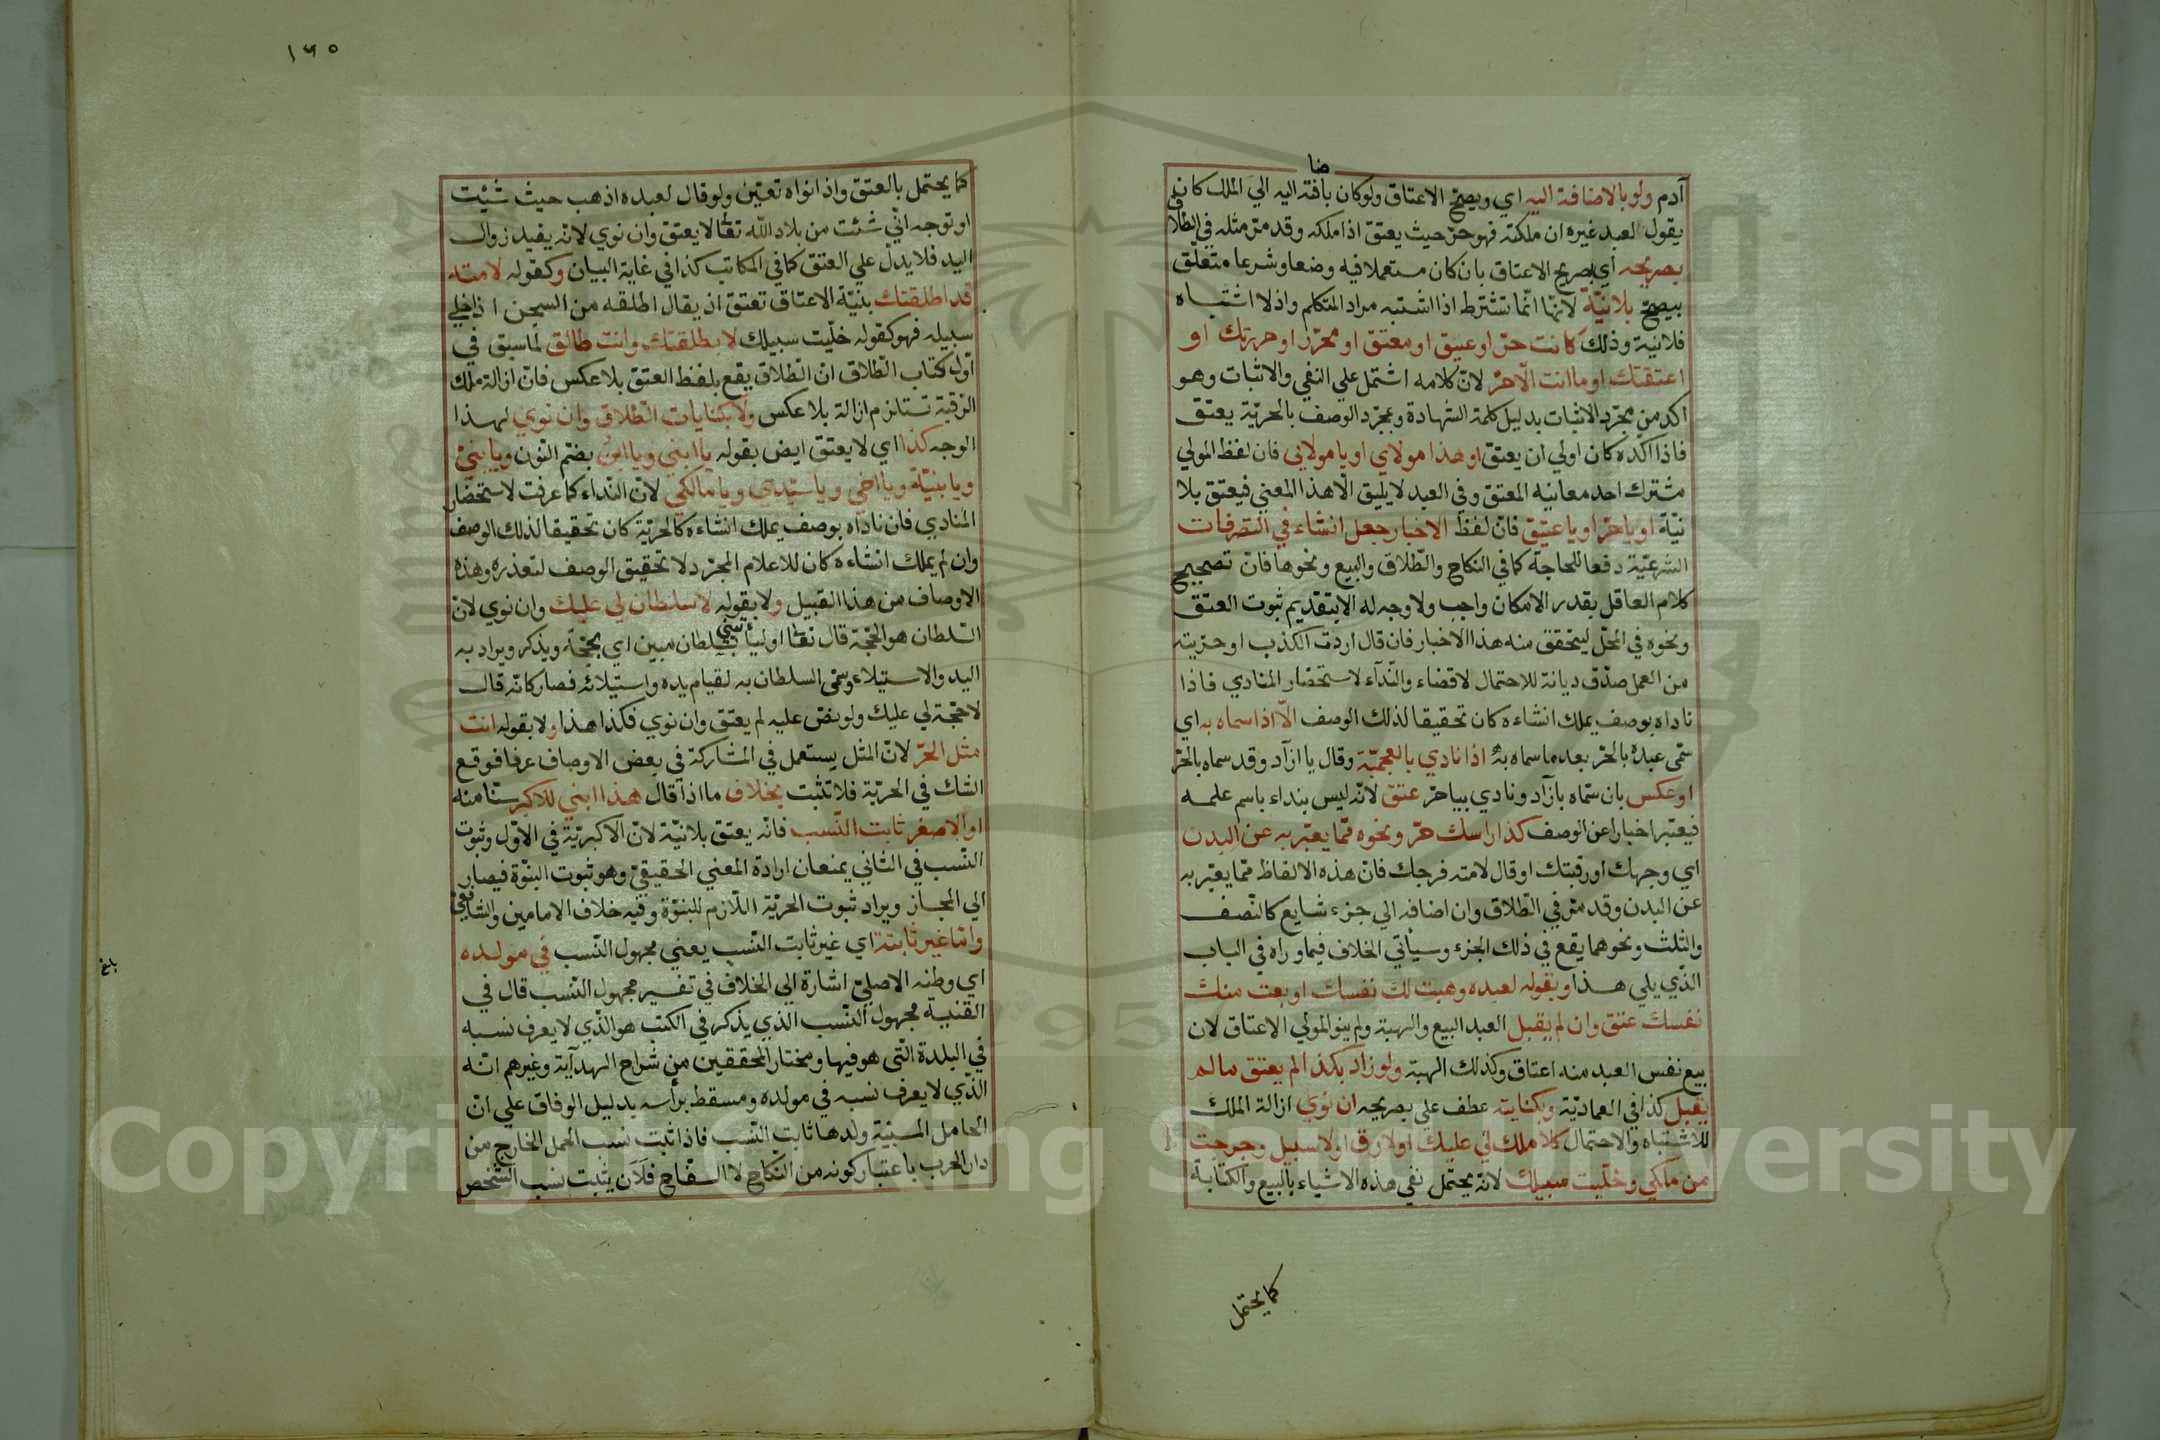 ضا
آدم ولو بالاضافة اليه اي ويصح الاعتاق ولو كان بافته اليه الي الملك كان
يقول لعبد غيره ان ملكته فهو حر حيث يعتق اذا ملكه وقد مر مثله في الطلاق
بصريحه اي بصريح الاعتاق بان كان مستعملا فيه وضعا وشرعا متعلق
بيصح بلا نية لانها انما تشترط اذا اشتبه مراد المتكلم واذ لا اشتباه
فلا نية وذلك كانت حر او عتيق او معتق او محرر او حررتك او
اعتقتك او ما انت الا حر لان كلامه اشتمل علي النفي والاثبات وهو
اكد من مجرد الاثبات بدليل كلمة الشهادة وبمجرد الوصف بالحرية يعتق
فاذا اكده كان اولي ان يعتق او هذا مولاي او يا مولاي فان لفظ المولي
مشترك احد معانيه المعتق وفي العبد لا يليق الا هذا المعني فيعتق بلا
نية او يا حر او يا عتيق فان لفظ الاخبار جعل انشاء في التصرفات
الشرعية دفعا للحاجة كما في النكاح والطلاق والبيع ونحوها فان تصحيح
كلام العاقل بقدر الامكان واجب ولا وجه له الا بتقديم ثبوت العتق
ونحوه في المحل ليتحقق منه هذا الاخبار فان قال اردت الكذب او حريته
من العمل صدق ديانة للاحتمال لا قضاء والنداء لاستحضار المنادي فاذا
ناداه بوصف يملك انشاءه كان تحقيقا لذلك الوصف الا اذا سماه به اي
سمي عبده بالحر بعد ما سماه به اذا نادي بالعجمية وقال يا ازاد وقد سماه بالحر
او عكس بان سماه بازاد ونادي بيا حر عتق لانه ليس بنداء باسم علمه
فيعتبر اخبارا عن الوصف كذا راسك حر ونحوه مما يعبر به عن البدن
اي وجهك او رقبتك او قال لامته فرجك فان هذه الالفاظ مما يعبر به
عن البدن وقد مر في الطلاق وان اضافه الي جزء شايع كالنصف
والثلث ونحوهما يقع في ذلك الجزء وسياتي الخلاف فيما وراه في الباب
الذي يلي هذا وبقوله لعبده وهبت لك نفسك او بعت منك
نفسك عتق وان لم يقبل العبد البيع والهبة ولم ينو المولي الاعتاق لان
بيع نفس العبد منه اعتاق وكذلك الهبة ولو زاد بكذا لم يعتق ما لم
يقبل كذا في العمادية وبكنايته عطف علي بصريحه ان نوي ازالة الملك
للاشتباه والاحتمال كلا ملك لي عليك او لا رق او لا سبيل وخرجت
من ملكي وخليت سبيلك لانه يحتمل نفي هذه الاشياء بالبيع والكتابة
كما يحتمل
١٦٥
كما يحتمل بالعتق واذا نواه تعين ولو قال لعبده اذهب حيث شئت
او توجه اني شئت من بلاد الله تعا لا يعتق وان نوي لانه يفيد زوال
اليد فلا يدل علي العتق كما في المكاتب كذا في غاية البيان وكقوله لامته
قد اطلقتك بنية الاعتاق تعتق اذ يقال اطلقه من السجن اذا خلي
سبيله فهو كقوله خليت سبيلك لا بطلقتك وانت طالق لما سبق في
اول كتاب الطلاق ان الطلاق يقع بلفظ العتق بلا عكس فان ازالة ملك
الرقبة تستلزم ازالة بلا عكس ولا بكنايات الطلاق وان نوي لهذا
الوجه كذا اي لا يعتق ايض بقوله يا ابني ويا ابن بضم النون ويا بني
ويا بنية ويا اخي ويا سيدي ويا مالكي لان النداء كما عرفت لاستحضار
المنادي فان ناداه بوصف يملك انشاءه كالحرية كان تحقيقا لذلك الوصف
وان لم يملك انشاءه كان للاعلام المجرد لا تحقيق الوصف لتعذره وهذه
الاوصاف من هذا القبيل ولا بقوله لا سلطان لي عليك وان نوي لان
السلطان هو الحجة قال تعا او ليأتيني بسلطان مبين اي بحجة ويذكر ويراد به
اليد والاستيلاء وسمي السلطان به لقيام يده واستيلائه فصار كانه قال
لا حجة لي عليك ولو نص عليه لم يعتق وان نوي فكذا هذا ولا بقوله انت
مثل الحر لان المثل يستعمل في المشاركة في بعض الاوصاف عرفا فوقع
الشك في الحرية فلا تثبت بخلاف ما اذا قال هذا ابني للاكبر سنا منه
او الاصغر ثابت النسب فانه يعتق بلا نية لان الاكبرية في الاول وثبوت
النسب في الثاني يمنعان ارادة المعني الحقيقي وهو ثبوت البنوة فيصار
الي المجاز ويراد ثبوت الحرية اللازم للبنوة وفيه خلاف الامامين والشافعي
واما غير ثابتة اي غير ثابت النسب يعني مجهول النسب في مولده
اي وطنه الاصلي اشارة الي الخلاف في تفسير مجهول النسب قال في
القنية مجهول النسب الذي يذكر في الكتب هو الذي لا يعرف نسبه
في البلدة التي هو فيها ومختار المحققين من شراح الهداية وغيرهم انه
الذي لا يعرف نسبه في مولده ومسقط رأسه بدليل الوفاق علي ان
الحامل المسبية ولدها ثابت النسب فاذا ثبت نسب الحمل الخارج من
دار الحرب باعتبار كونه من النكاح لا السفاح فلان يثبت نسب الشخص
بلغ
Copyright © King Saud University